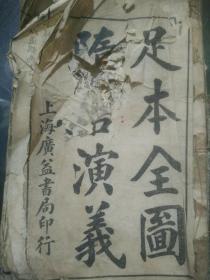 足本全圖
隋唐演義
上海廣益書局印行